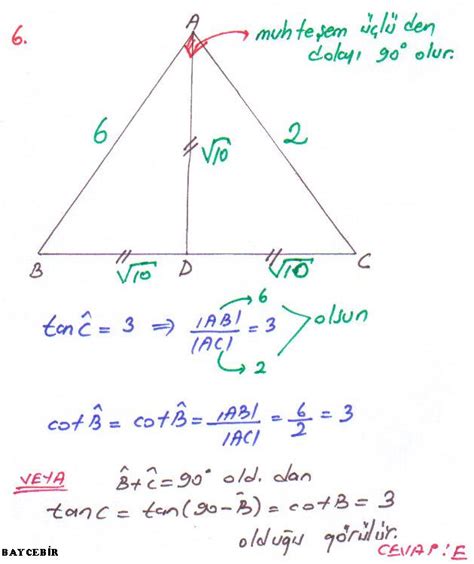 6.
A
muhteşem üçlüden
dolayı 90° olur.
6
√10
2
B
√10
D
√10
C
tan Ĉ = 3 ⇒ |AB| / |AC| = 3
6
2
olsun
cot B̂ = cot B̂ = |AB| / |AC| = 6/2 = 3
VEYA B̂ + Ĉ = 90° old. dan
tan C = tan(90 - B̂) = cot B = 3
olduğu görülür.
CEVAP: E
BAYCEBİR